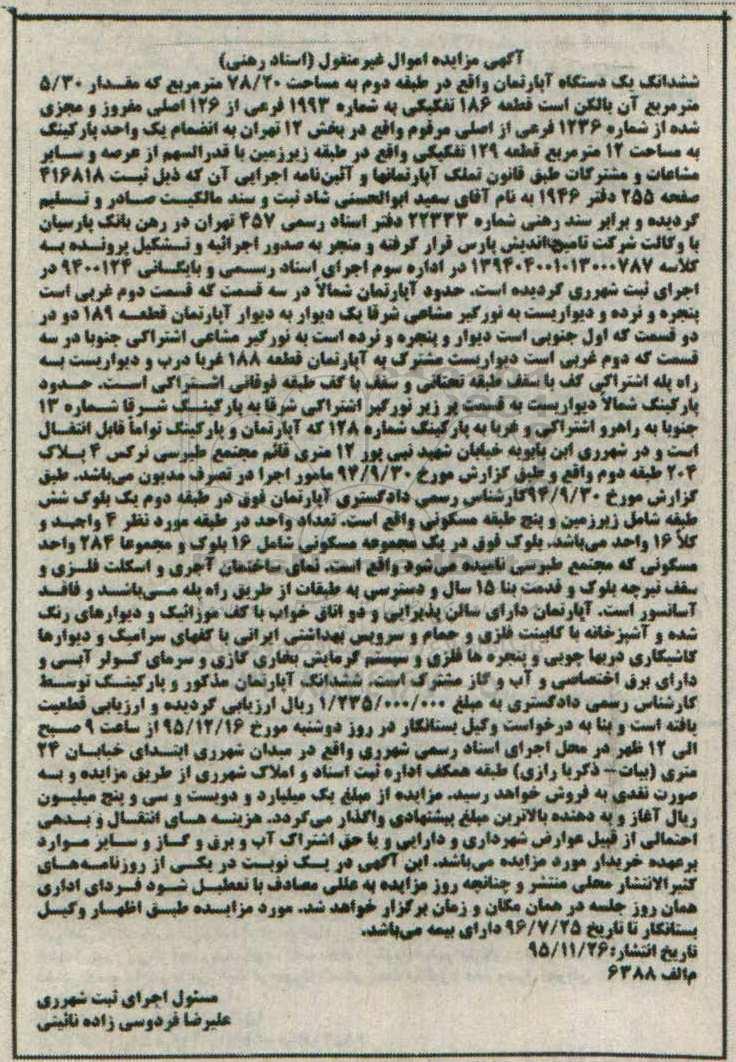 آگهی مزایده اموال غیرمنقول (اسناد رهنی)
ششدانگ یک دستگاه آپارتمان واقع در طبقه دوم به مساحت ۷۸/۲۰ مترمربع که مقدار ۵/۳۰
مترمربع آن بالکن است قطعه ۱۸۶ تفکیکی به شماره ۱۹۹۳ فرعی از ۱۲۶ اصلی مفروز و مجزی
شده از شماره ۱۲۳۶ فرعی از اصلی مرقوم واقع در بخش ۱۲ تهران به انضمام یک واحد پارکینگ
به مساحت ۱۲ مترمربع قطعه ۱۲۹ تفکیکی واقع در طبقه زیرزمین با قدرالسهم از عرصه و سایر
مشاعات و مشترکات طبق قانون تملک آپارتمانها و آئین‌نامه اجرایی آن که ذیل ثبت ۴۱۶۸۱۸
صفحه ۲۵۵ دفتر ۱۹۴۶ به نام آقای سعید ابوالحسنی شاد ثبت و سند مالکیت صادر و تسلیم
گردیده و برابر سند رهنی شماره ۲۲۳۳۳ دفتر اسناد رسمی ۴۵۷ تهران در رهن بانک پارسیان
با وکالت شرکت تامین اندیش پارس قرار گرفته و منجر به صدور اجرائیه و تشکیل پرونده به
کلاسه ۱۳۹۴۰۴۰۰۱۰۱۳۰۰۰۷۸۷ در اداره سوم اجرای اسناد رسمی و بایگانی ۹۴۰۰۱۲۴ در
اجرای ثبت شهرری گردیده است. حدود آپارتمان شمالاً در سه قسمت که قسمت دوم غربی است
پنجره و نرده و دیواریست به نورگیر مشاعی شرقا یک دیوار به دیوار آپارتمان قطعه ۱۸۹ دو در
دو قسمت که اول جنوبی است دیوار و پنجره و نرده است به نورگیر مشاعی اشتراکی جنوبا در سه
قسمت که دوم غربی است دیواریست مشترک به آپارتمان قطعه ۱۸۸ غربا درب و دیواریست به
راه پله اشتراکی کف با سقف طبقه تحتانی و سقف با کف طبقه فوقانی اشتراکی است. حدود
پارکینگ شمالاً دیواریست به قسمت پر زیر نورگیر اشتراکی شرقا به پارکینگ شرقا شماره ۱۳
جنوبا به راهرو اشتراکی و غربا به پارکینگ شماره ۱۲۸ که آپارتمان و پارکینگ تواماً قابل انتقال
است و در شهرری ابن بابویه خیابان شهید نبی پور ۱۲ متری قائم مجتمع طبرسی نرگس ۴ پلاک
۲۰۴ طبقه دوم واقع و طبق گزارش مورخ ۹۴/۹/۳۰ مامور اجرا در تصرف مدیون می‌باشد. طبق
گزارش مورخ ۹۴/۹/۳۰ کارشناس رسمی دادگستری آپارتمان فوق در طبقه دوم یک بلوک شش
طبقه شامل زیرزمین و پنج طبقه مسکونی واقع است. تعداد واحد در طبقه مورد نظر ۴ واحد و
کلاً ۱۶ واحد می‌باشد. بلوک فوق در یک مجموعه مسکونی شامل ۱۶ بلوک و مجموعا ۲۸۴ واحد
مسکونی که مجتمع طبرسی نامیده می‌شود واقع است. نمای ساختمان آجری و اسکلت فلزی و
سقف تیرچه بلوک و قدمت بنا ۱۵ سال و دسترسی به طبقات از طریق راه پله می‌باشد و فاقد
آسانسور است. آپارتمان دارای سالن پذیرایی و دو اتاق خواب با کف موزائیک و دیوارهای رنگ
شده و آشپزخانه با کابینت فلزی و حمام و سرویس بهداشتی ایرانی با کفهای سرامیک و دیوارها
کاشیکاری دربها چوبی و پنجره ها فلزی و سیستم گرمایش بخاری گازی و سرمای کولر آبی و
دارای برق اختصاصی و آب و گاز مشترک است. ششدانگ آپارتمان مذکور و پارکینگ توسط
کارشناس رسمی دادگستری به مبلغ ۱/۲۳۵/۰۰۰/۰۰۰ ریال ارزیابی گردیده و ارزیابی قطعیت
یافته است و بنا به درخواست وکیل بستانکار در روز دوشنبه مورخ ۹۵/۱۲/۱۶ از ساعت ۹ صبح
الی ۱۲ ظهر در محل اجرای اسناد رسمی شهرری واقع در میدان شهرری ابتدای خیابان ۲۴
متری (بیات- ذکریا رازی) طبقه همکف اداره ثبت اسناد و املاک شهرری از طریق مزایده و به
صورت نقدی به فروش خواهد رسید. مزایده از مبلغ یک میلیارد و دویست و سی و پنج میلیون
ریال آغاز و به دهنده بالاترین مبلغ پیشنهادی واگذار می‌گردد. هزینه های انتقال و بدهی
احتمالی از قبیل عوارض شهرداری و دارایی و یا حق اشتراک آب و برق و گاز و سایر موارد
برعهده خریدار مورد مزایده می‌باشد. این آگهی در یک نوبت در یکی از روزنامه‌های
کثیرالانتشار محلی منتشر و چنانچه روز مزایده به عللی مصادف با تعطیل شود فردای اداری
همان روز جلسه در همان مکان و زمان برگزار خواهد شد. مورد مزایده طبق اظهار وکیل
بستانکار تا تاریخ ۹۶/۷/۲۵ دارای بیمه می‌باشد.
تاریخ انتشار: ۹۵/۱۱/۲۶
م‌الف ۶۳۸۸
مسئول اجرای ثبت شهرری
علیرضا فردوسی زاده نائینی